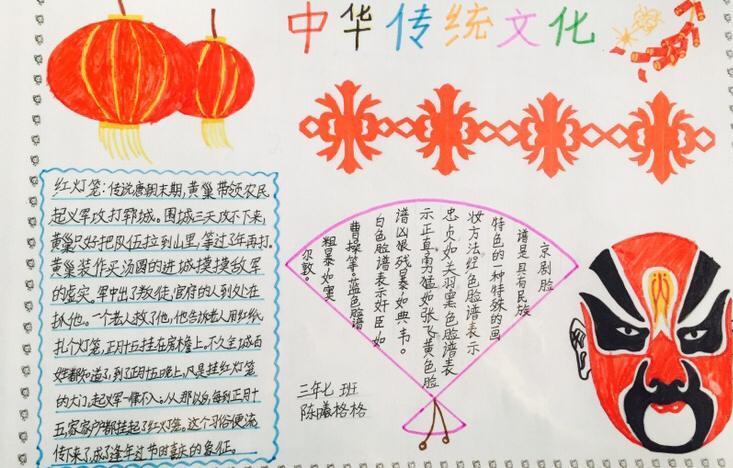 中华传统文化
红灯笼：传说唐朝末期，黄巢带领农民
起义军攻打郓城。围城三天攻不下来，
黄巢只好把队伍拉到山里，等过了年再打。
黄巢装作买汤圆的进城摸摸敌军
的虚实。军中出了叛徒，官府的人到处在
抓他。一个老人救了他，他告诉老人用红纸
扎个灯笼，正月十五挂在房檐上。不久全城百
姓都知道了，到了正月十五晚上，凡是挂红灯笼
的大门，起义军一律不入。从那以后，每到正月十
五，家家户户都挂起了红灯笼。这个习俗便流
传下来了，成了逢年过节的喜庆的象征。
京剧脸
谱是具有民族
特色的一种特殊的画
妆方法红色脸谱表示
忠贞如关羽黑色脸谱表
示正直勇猛如张飞黄色脸
谱凶狠残暴如典韦。
白色脸谱表示奸臣如
曹操等。蓝色脸谱
粗暴如窦
尔敦。
三年七班
陈曦格格